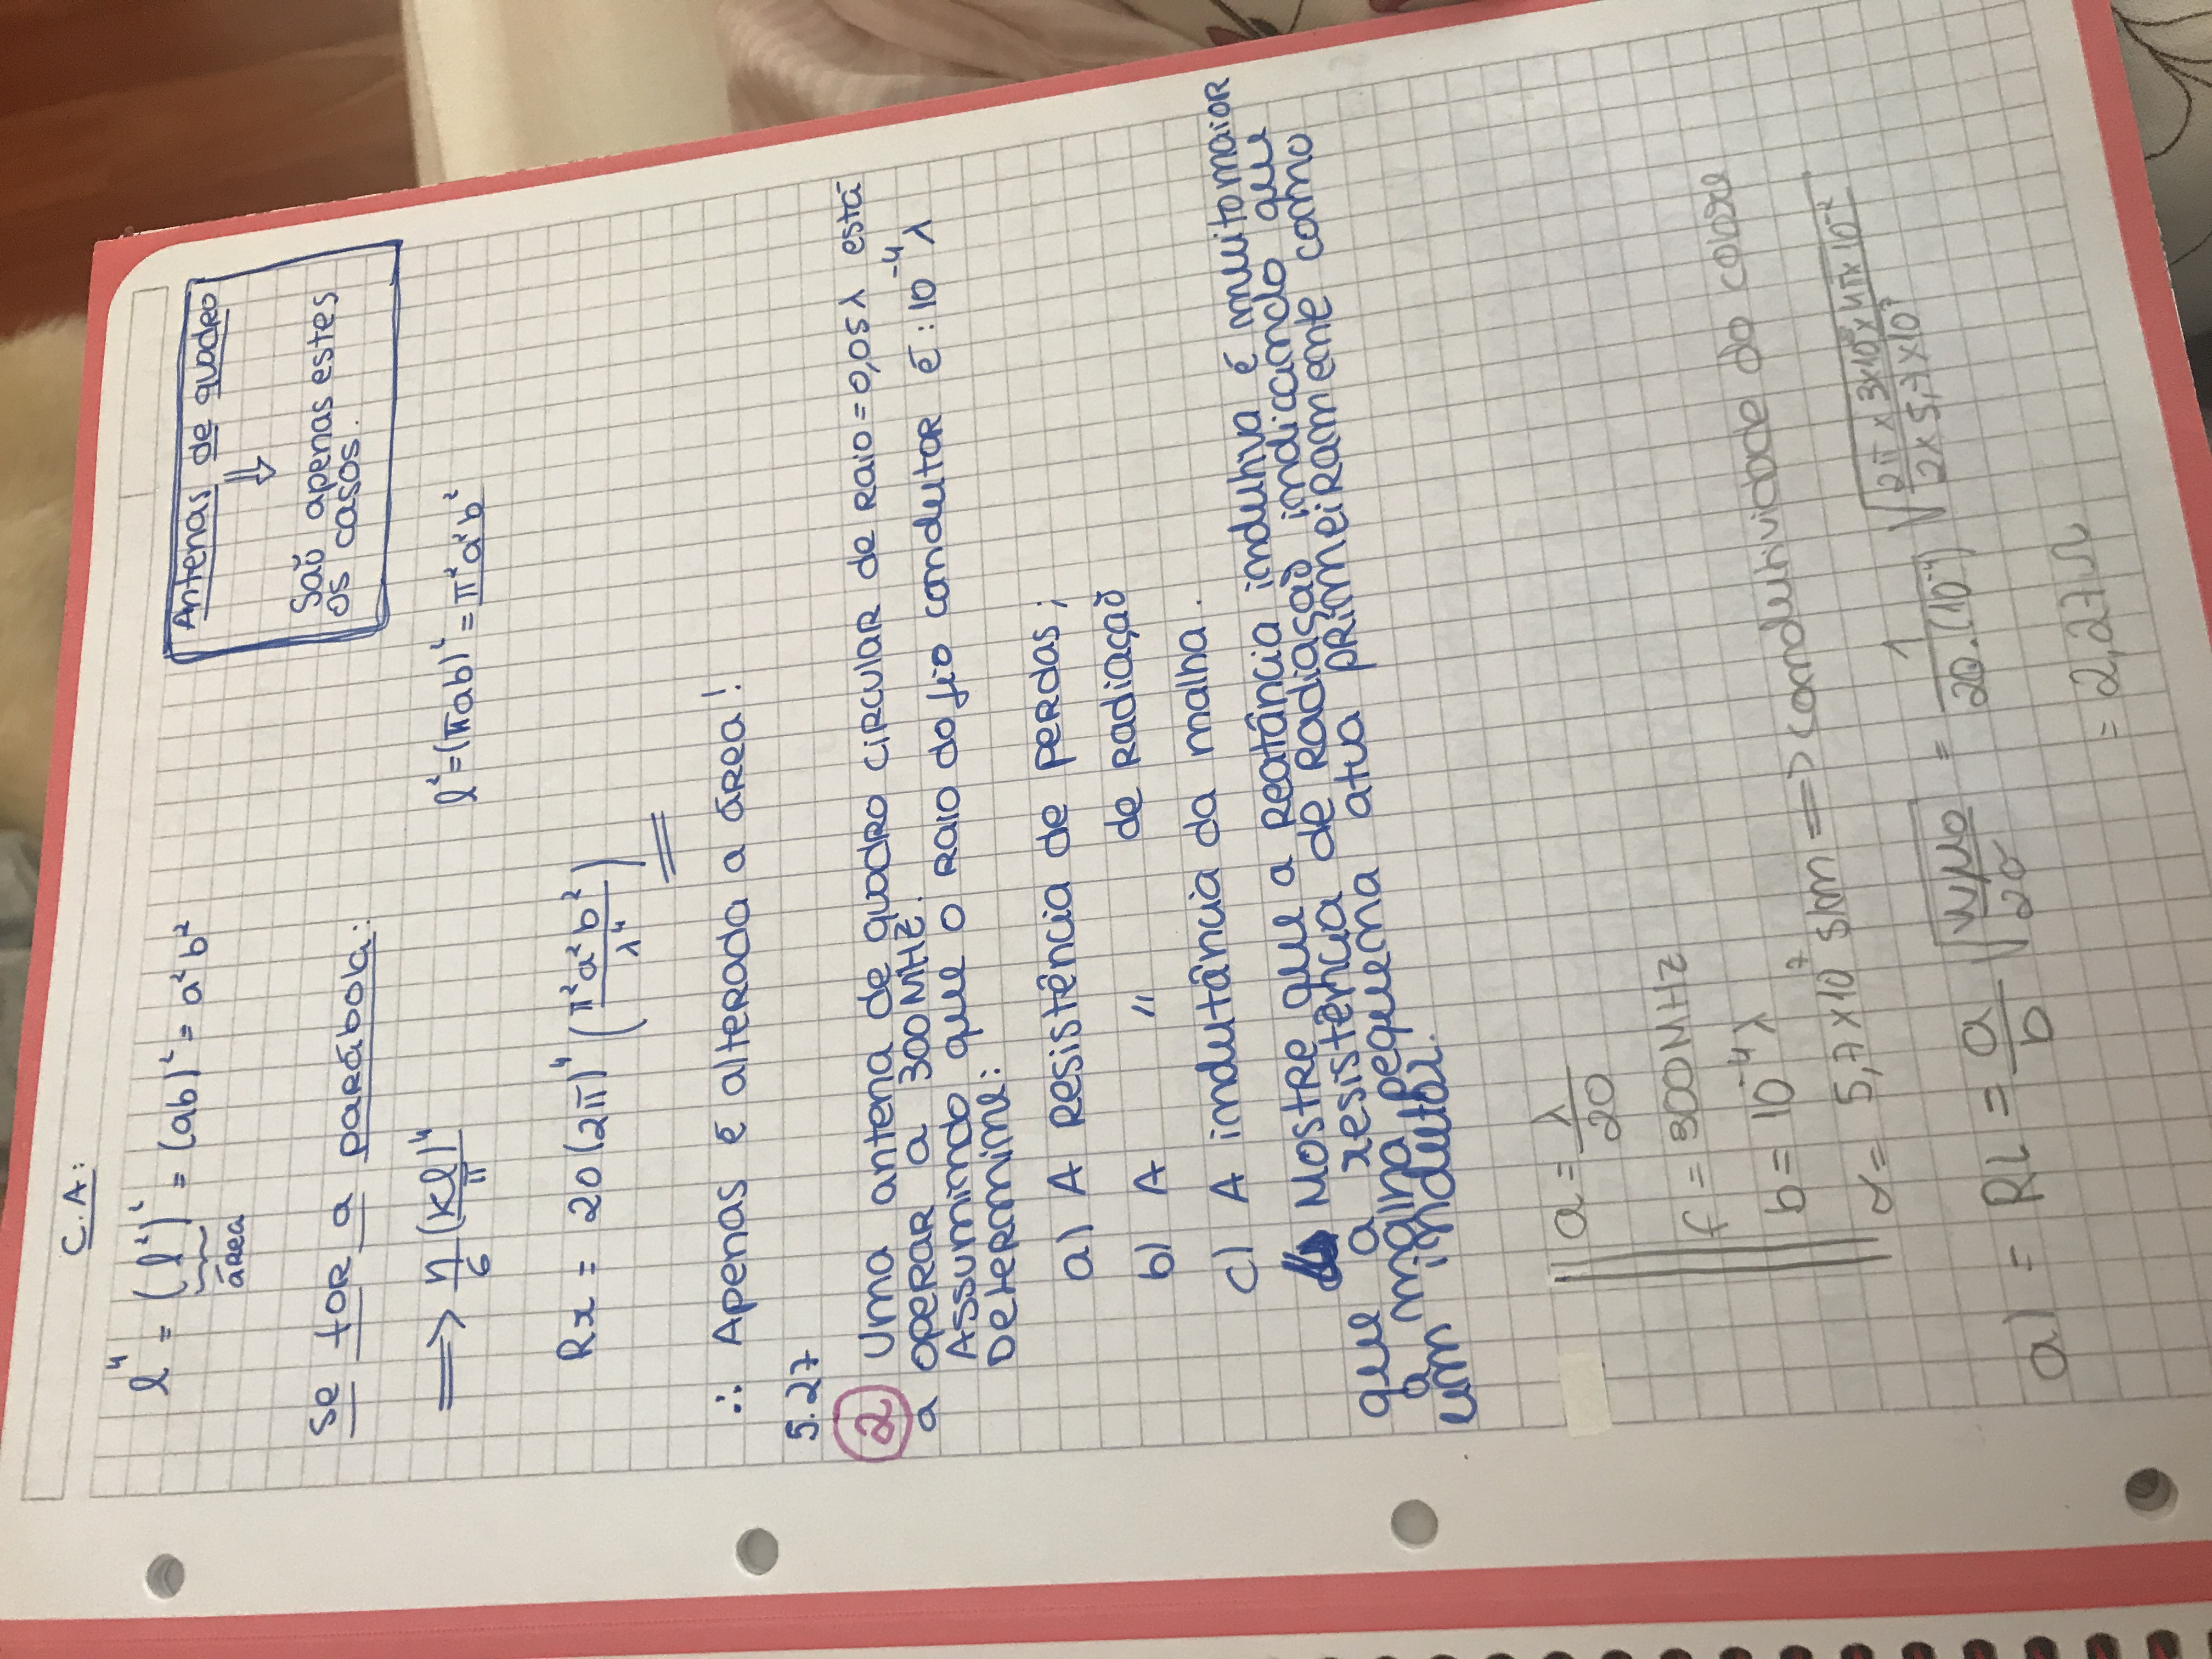 C.A:
l⁴ = (l²)² = (ab)² = a² b²
área
Antenas de quadro
⇓
Saõ apenas estes
os casos.
se for a parábola:
⟹ η/6 (kl)⁴/π
l² = (πab)² = π²a²b²
Rx = 20(2π)⁴ (π²a²b²/λ⁴)
∴ Apenas é alterada a área!
5.27
② Uma antena de quadro circular de raio = 0,05λ está
a operar a 300MHz.
Assumindo que o raio do fio condutor é : 10⁻⁴λ
Determine:
a) A Resistência de perdas;
b) A " de Radiaçaõ
c) A indutância da malha.
Mostre que a reatância indutiva é muito maior
que a resistência de Radiaçaõ indicando que
a malha pequena atua primeiramente como
um indutor.
a = λ/20
f = 300MHz
b = 10⁻⁴λ
σ = 5,7×10⁷ s/m ⟹ condutividade do cobre
a) = RL = a/b √(wμo/2σ) = 1/(20.(10⁻⁴)) √(2π × 3×10⁸ × 4π × 10⁻²/(2 × 5,7 × 10⁷))
= 2,27 Ω